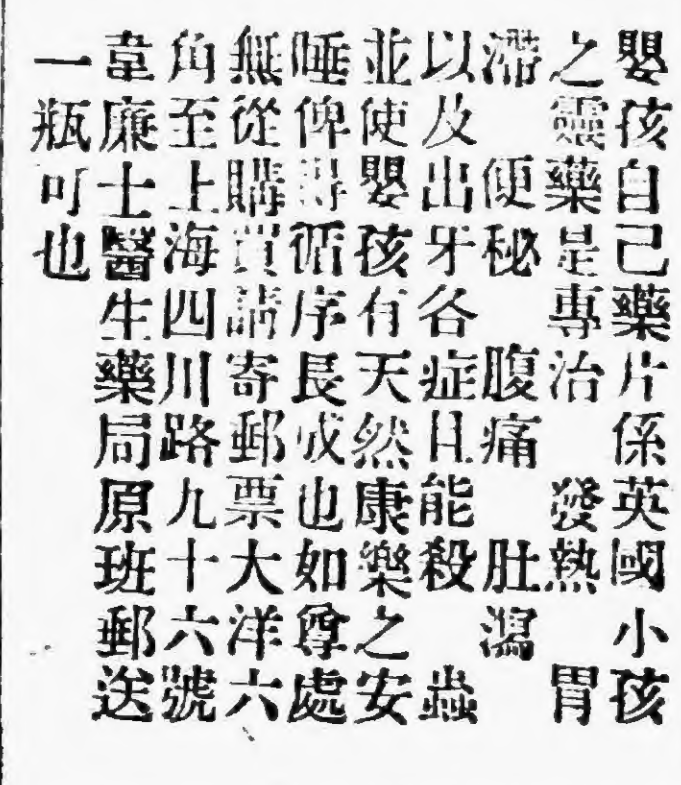 嬰孩自己藥片係英國小孩
之靈藥是專治 發熱 胃
滯 便秘 腹痛 肚瀉
以及出牙各症且能殺 蟲
並使嬰孩有天然康樂之安
睡俾得循序長成也如尊處
無從購買請寄郵票大洋六
角至上海四川路九十六號
韋廉士醫生藥局原班郵送
一瓶可也